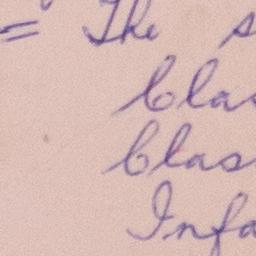 = The s
Clas
Clas
Infa